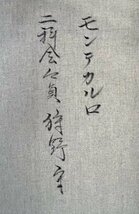 モンテカルロ
二科会会員 狩野守